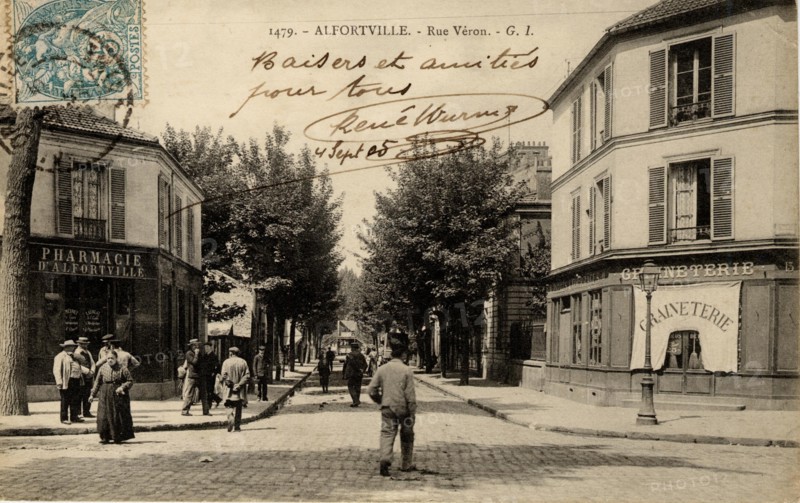 1479. - ALFORTVILLE. - Rue Véron. - G. I.
Baisers et amitiés
pour tous
René Wurms
4 Sept 05
POSTES
PHARMACIE
D'ALFORTVILLE
GRAINETERIE
GRAINETERIE
PHOTO12